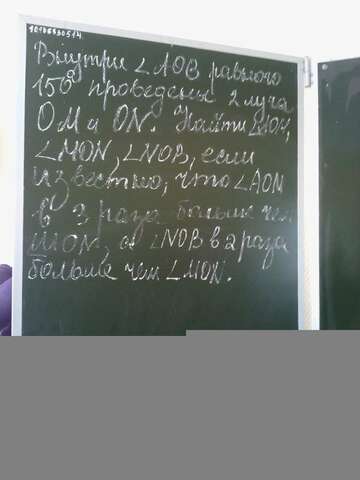 10106930514
Внутри ∠AOB равного
150° проведены 2 луча
OM и ON. Найти ∠AOM,
∠MON, ∠NOB, если
известно, что ∠AOM
в 3 раза больше чем
MON, а ∠NOB в 2 раза
больше чем ∠MON.